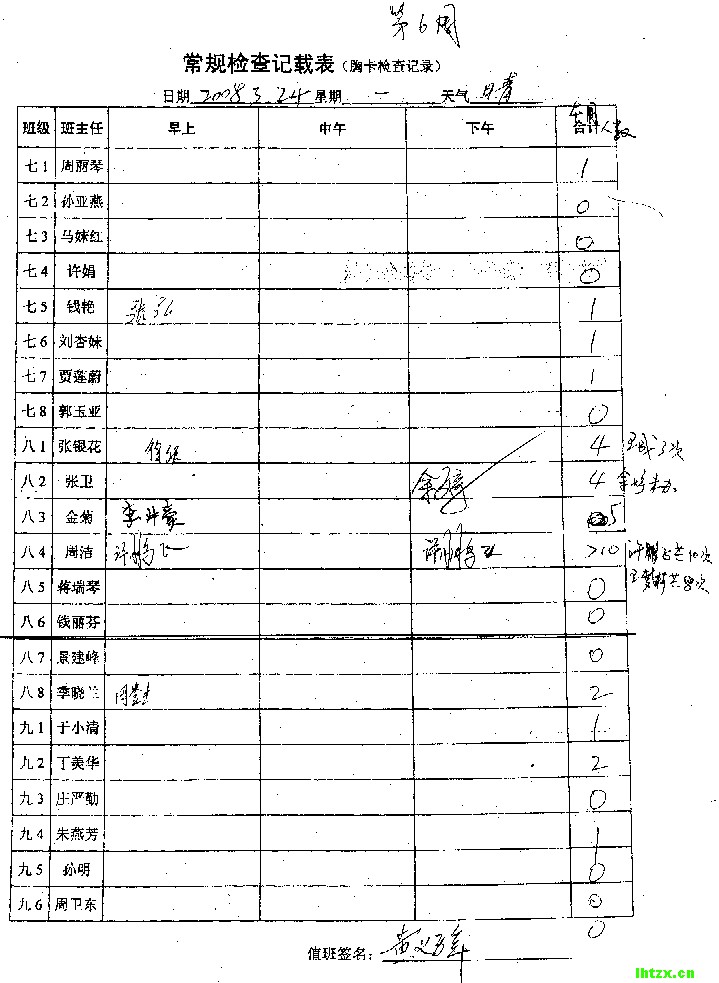 第6周
常规检查记载表（胸卡检查记录）
日期 2008 3. 24 星期 一 天气 日青
班级 班主任 早上 中午 下午 合计人数
七1 周丽琴 1
七2 孙亚燕 0
七3 马妹红 0
七4 许娟 0
七5 钱艳 张弘 1
七6 刘杏妹 1
七7 贾莲蔚 1
七8 郭玉亚 0
八1 张银花 4
八2 张卫 4
八3 金菊 5
八4 周洁 许鹏飞 许鹏飞 >10
八5 蒋瑞琴 0
八6 钱丽芬 0
八7 景建峰 0
八8 季晓兰 2
九1 于小清 1
九2 丁美华 2
九3 庄严勤 0
九4 朱燕芳 1
九5 孙明 0
九6 周卫东 0
0
值班签名：
lhtzx.cn